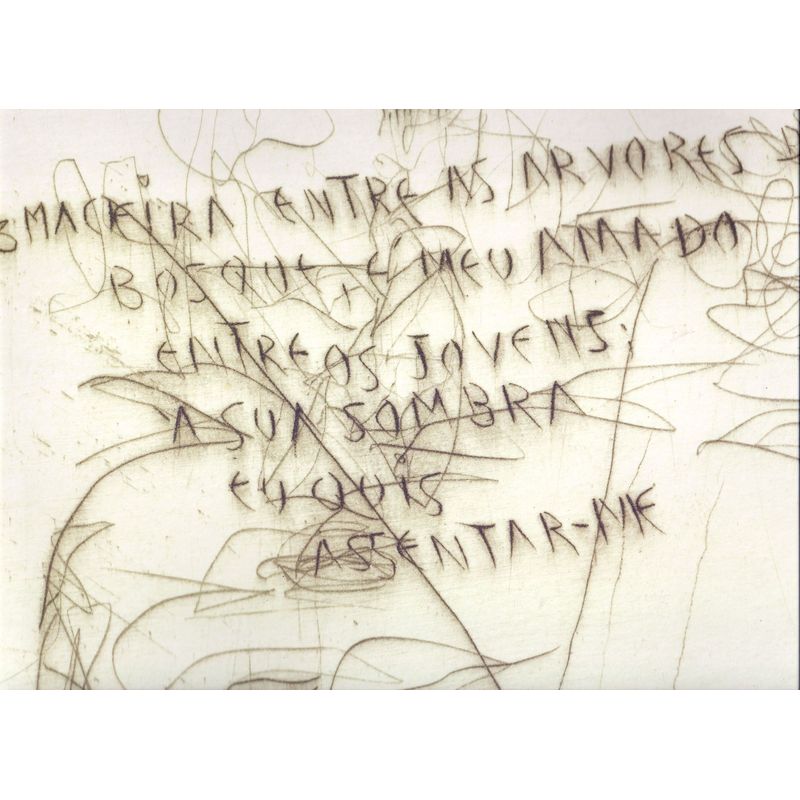 3 MACIEIRA ENTRE AS ARVORES D
BOSQUE, É MEU AMADO
ENTRE OS JOVENS;
A SUA SOMBRA
EU QUIS
ASSENTAR-ME